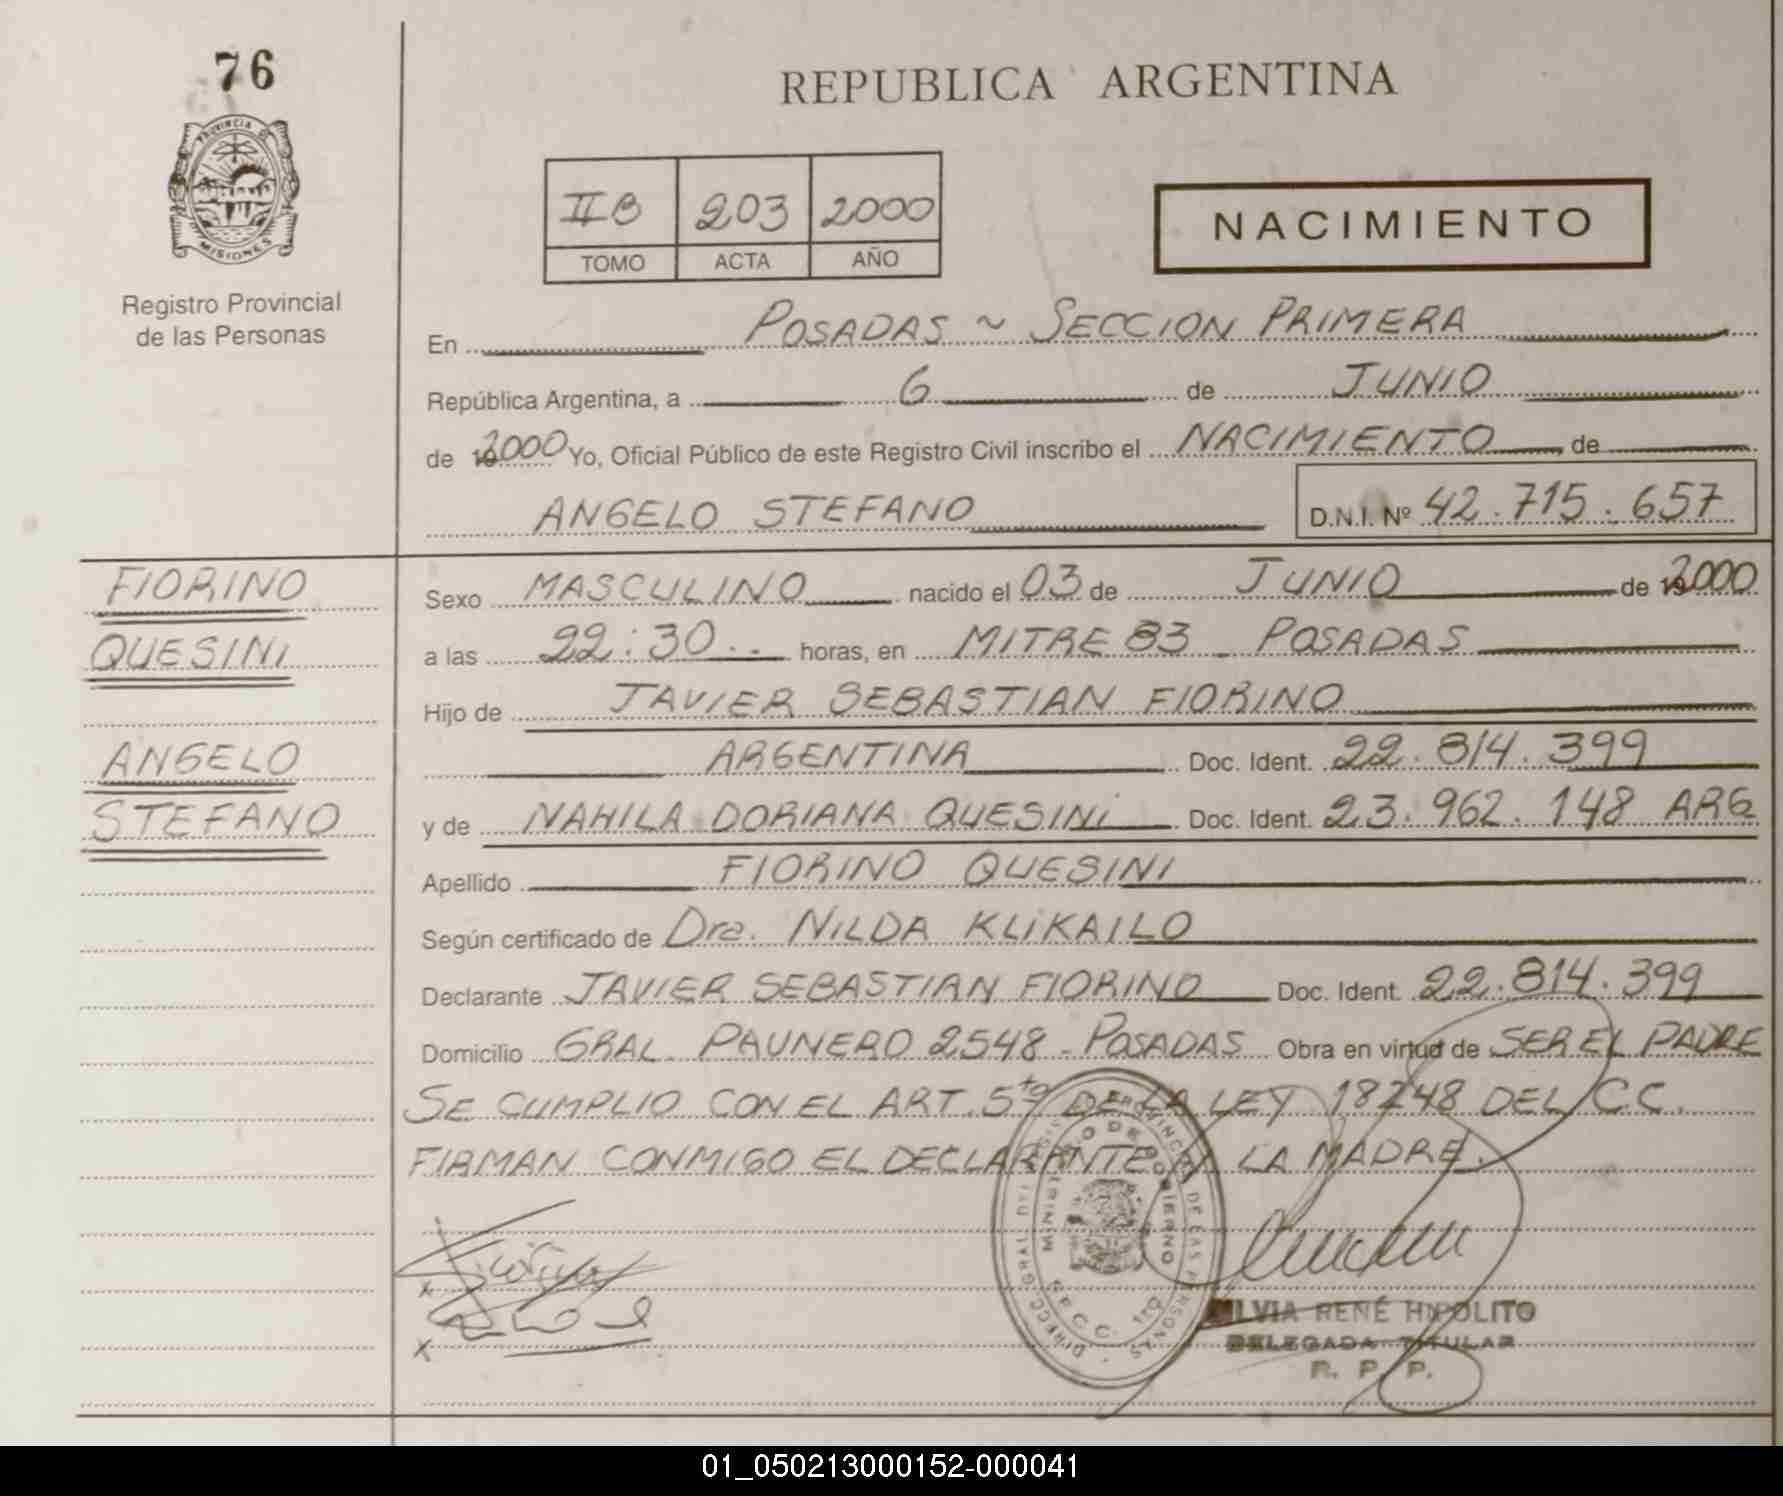 76
REPUBLICA ARGENTINA
PROVINCIA DE
MISIONES
Registro Provincial
de las Personas
II B 203 2000
TOMO ACTA AÑO
NACIMIENTO
En POSADAS ~ SECCION PRIMERA
República Argentina, a 6 de JUNIO
de 2000 Yo, Oficial Público de este Registro Civil inscribo el NACIMIENTO de
ANGELO STEFANO D.N.I. Nº 42.715.657
FIORINO
QUESINI
ANGELO
STEFANO
Sexo MASCULINO nacido el 03 de JUNIO de 2000
a las 22:30.. horas, en MITRE 83 - POSADAS
Hijo de JAVIER SEBASTIAN FIORINO
ARGENTINA Doc. Ident. 22.814.399
y de NAHILA DORIANA QUESINI Doc. Ident. 23.962.148 ARG
Apellido FIORINO QUESINI
Según certificado de Dra. NILDA KLIKAILO
Declarante JAVIER SEBASTIAN FIORINO Doc. Ident. 22.814.399
Domicilio GRAL. PAUNERO 2548 - POSADAS Obra en virtud de SER EL PADRE
SE CUMPLIO CON EL ART. 5to DE LA LEY 18248 DEL C.C.
FIRMAN CONMIGO EL DECLARANTE Y LA MADRE.
MINISTERIO DE GOBIERNO
SILVIA RENÉ HIPOLITO
DELEGADA TITULAR
R. P. P.
01_050213000152-000041